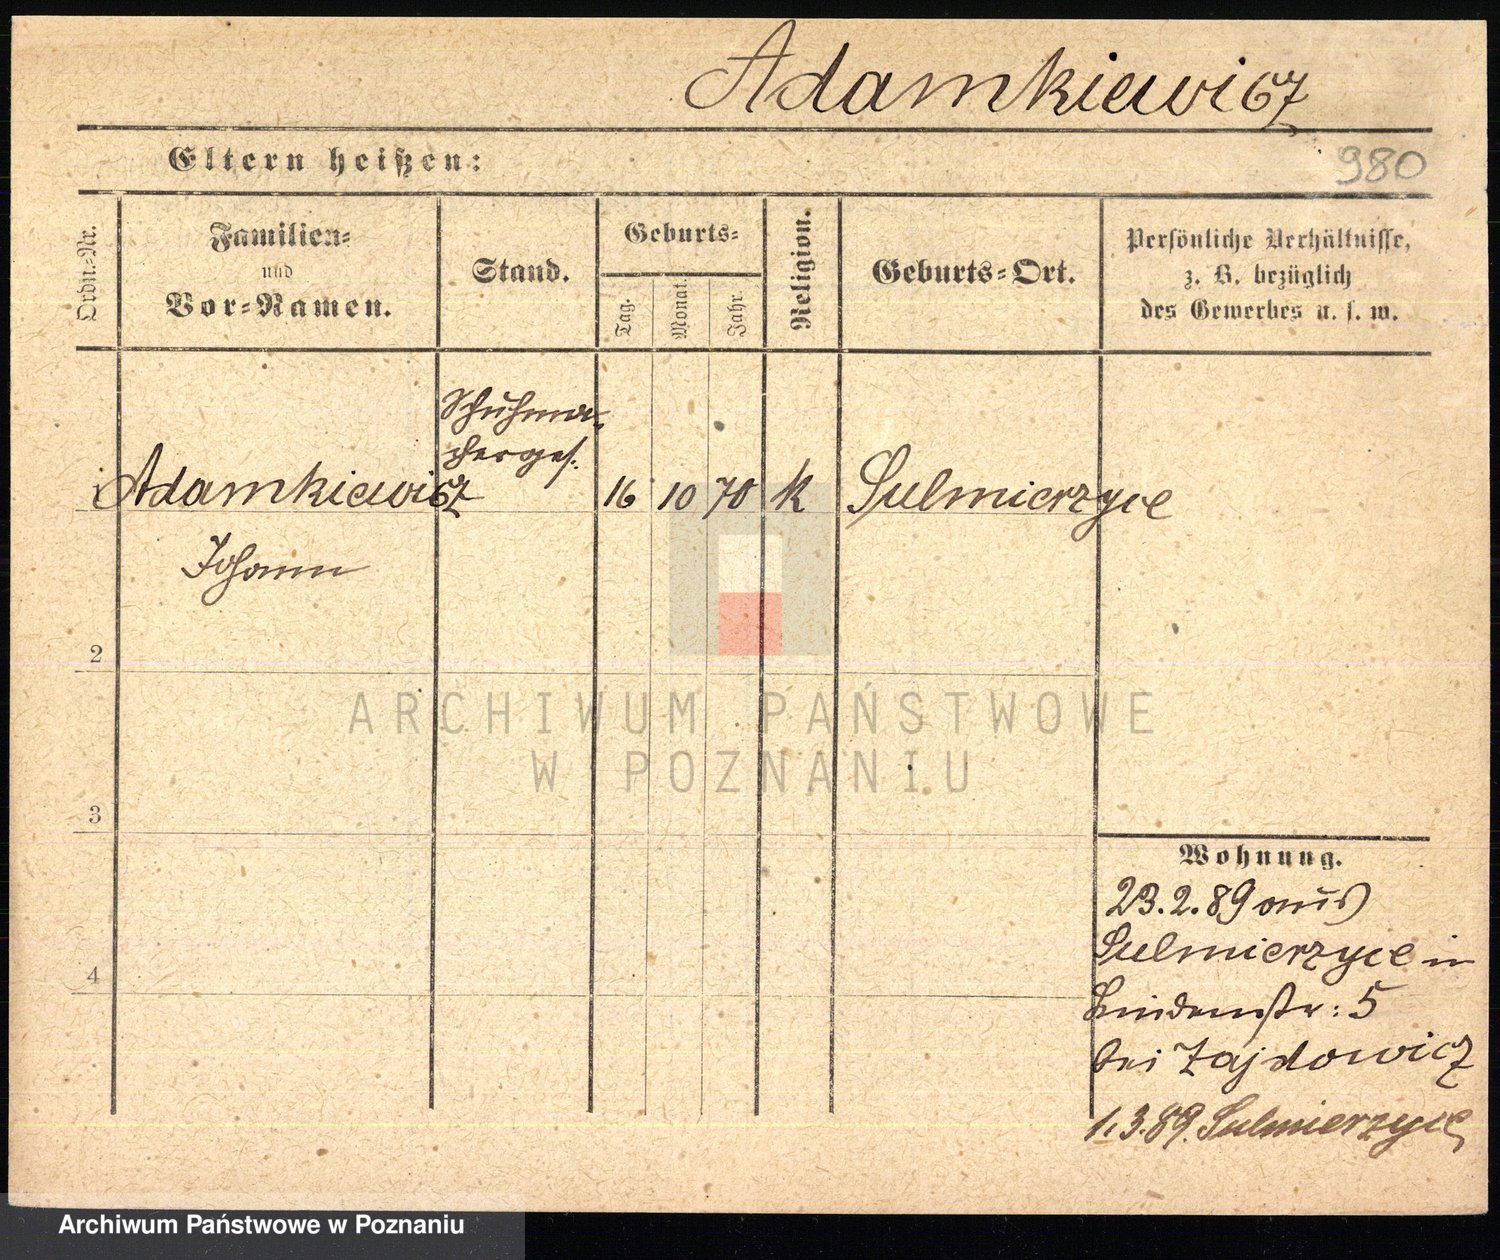 Adamkiewicz
Eltern heißen:
980
Ordn.-Nr.
Familien-
und
Vor-Namen.
Stand.
Geburts-
Tag.
Monat.
Jahr.
Religion.
Geburts-Ort.
Persönliche Verhältnisse,
z. B. bezüglich
des Gewerbes u. s. w.
Schuhma-
cherges.
1 Adamkiewicz 16 10 70 k Sulmierzyce
Johann
2
ARCHIWUM PAŃSTWOWE
W POZNANIU
3
Wohnung.
23.2.89 aus
Sulmierzyce in
4
Lindenstr: 5
bei Zajdowicz
1.3.89. Sulmierzyce
Archiwum Państwowe w Poznaniu